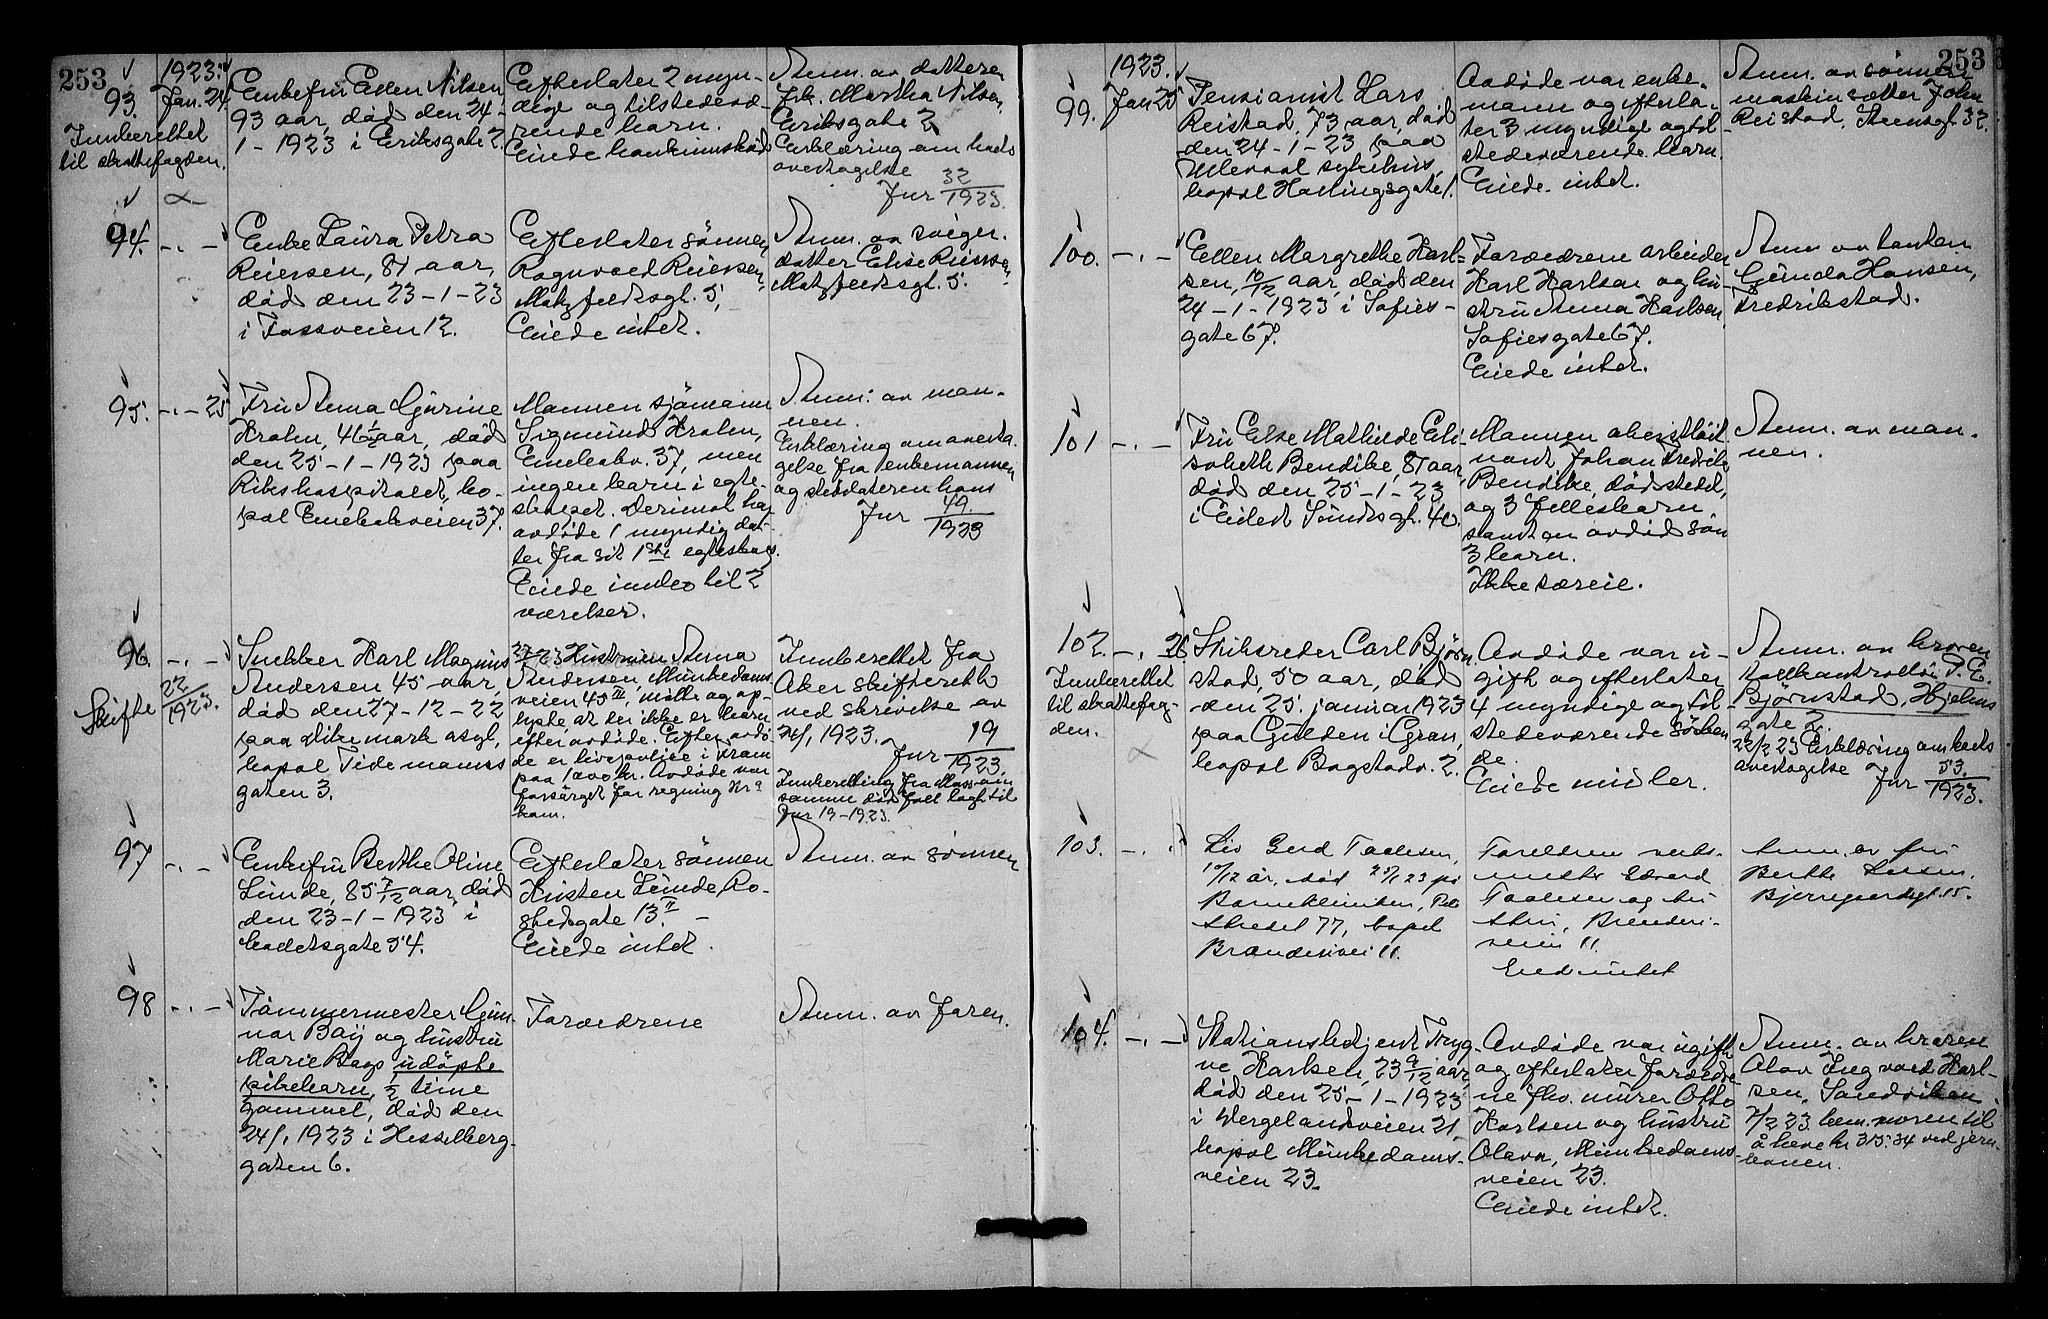 253
1923.
93. Jan. 24
Innberettet
til skattefogden.
Enkefru Ellen Nilsen
93 aar, død den 24-
1-1923 i Eriksgate 2.
Efterlater 2 myn-
dige og tilstedevæ-
rende barn.
Anm. av datteren
frk. Martha Nilsen,
Eriksgate 2
Erklæring om bods
overtagelse
Jnr 32/1923.
94. -.-
Enke Laura Petra
Reiersen, 81 aar,
død den 23-1-23
i Fossveien 12.
Efterlater sønnen
Ragnvald Reiersen,
Motzfeldtsgt. 5,
Eiede intet.
Anm. av sviger-
datter Elise Reiersen
Motzfeldtsgt. 5.
95. -.- 25
Fru Anna Gurine
Krohn, 46 1/2 aar, død
den 25-1-1923 paa
Rikshospitalet, bo-
pæl Enebakveien 37.
Mannen sjømann
Sigmund Krohn,
Enebakv. 37, men
ingen barn i egte-
skapet. Derimot har
avdøde 1 myndig dat-
ter fra sit 1ste egteskap.
Eiede innbo til 2
værelser.
Anm. av man-
nen.
Erklæring om overta-
gelse fra enkemannen
og steddatteren hans
Jnr 49/1923
96. -.-
Skifte 22/1923.
Snekker Karl Magnus
Andersen 45 aar,
død den 27-12-22
paa Dikemark asyl,
bopæl Tidemanns
gaten 3.
27/3 23 Hustruen Anna
Andersen, Munkedams-
veien 45 III, møtte og op-
lyste at der ikke er barn
efter avdøde. Efter avdø-
de er livspolice i Fram
paa 1000 kr. Avdøde var
forsørget for regning Kr.a
kom.
Innberettet fra
Aker skifterett
ved skrivelse av
24/1 1923.
Jnr 19/1923
Innberetning fra
samme død fall lagt til
Jnr 19-1923.
97 -.-
Enkefru Berthe Oline
Lunde, 85 7/12 aar, død
den 23-1-1923 i
Kadetsgate 54.
Efterlater sønnen
Kristen Lunde Ro-
stedsgate 13 II. -
Eiede intet.
Anm. av sønnen
98 -.-
Tømmermester Gun-
nar Bay og hustru
Marie Bays udøpte
pikebarn, 1/2 time
gammel, død den
24/1 1923 i Hesselberg-
gaten 6.
Forældrene
Anm. av faren.
253
1923.
99. Jan 25
Pensionist Lars
Reistad, 73 aar, død
den 24-1-23 paa
Ullevaal sykehus,
bopæl Hallingsgate 1.
Avdøde var enke-
mann og efterla-
ter 3 myndige og til-
stedeværende barn.
Eiede intet.
Anm. av sønnen
maskinsætter John
Reistad, Steensgt. 32.
100. -.-
Ellen Margrethe Karl-
sen, 10/12 aar, død den
24-1-1923 i Sofies-
gate 67.
Forældrene arbeider
Karl Karlsen og hu-
stru Anna Karlsen
Sofiesgate 67.
Eiede intet.
Anm av tanten
Gunda Hansen,
Fredrikstad.
101 -.-
Fru Else Mathilde Eli-
sabeth Bendike, 81 aar,
død den 25-1-23
i Eilert Sundtsgt. 40.
Mannen oberstløit-
nant Johan Fredrik
Bendike, dødsstedet,
og 3 fellesbarn
samt en avdød søn
3 barn.
Ikke særeie.
Anm. av man-
nen.
102. -.- 26.
Innberettet
til skattefog-
den.
Skibsreder Carl Bjørn-
stad, 50 aar, død
den 25. januar 1923
paa Gulden i Gran,
bopæl Bogstadv. 2.
Avdøde var u-
gift og efterlater
4 myndige og til-
stedeværende søsken
de.
Eiede midler.
Anm. av broren
tollkontrollør P. C.
Bjørnstad, Hjelms
gate 2.
22/2 23 Erklæring om bods
overtagelse
Jnr 53/1923.
103. -.-
Liv Gerd Paalesen,
10/12 år, død 25/1 23 på
Barneklinikken, Pile
stredet 77, bopæl
Brandenvei 11.
Foreldrene verks-
mester Edvard
Paalesen og hu
stru, Brenden-
veien 11.
Eied intet
Anm. av fru
Berthe Larsen,
Bjerregaardsgt. 15.
104. -.-
Stationsbetjent Tryg-
ve Karlsen, 23 9/12 aar,
død den 25-1-1923
i Wergelandsveien 21,
bopæl Munkedams-
veien 23.
Avdøde var ugift
og efterlater foreldre
ne fhv. murer Otto
Karlsen og hustru
Olava, Munkedams-
veien 23.
Eiede intet.
Anm. av broren
Olav Ingvald Karl-
sen, Sandviken.
7/2 23 bem. moren til
å heve kr 315.34 ved jern-
banen.